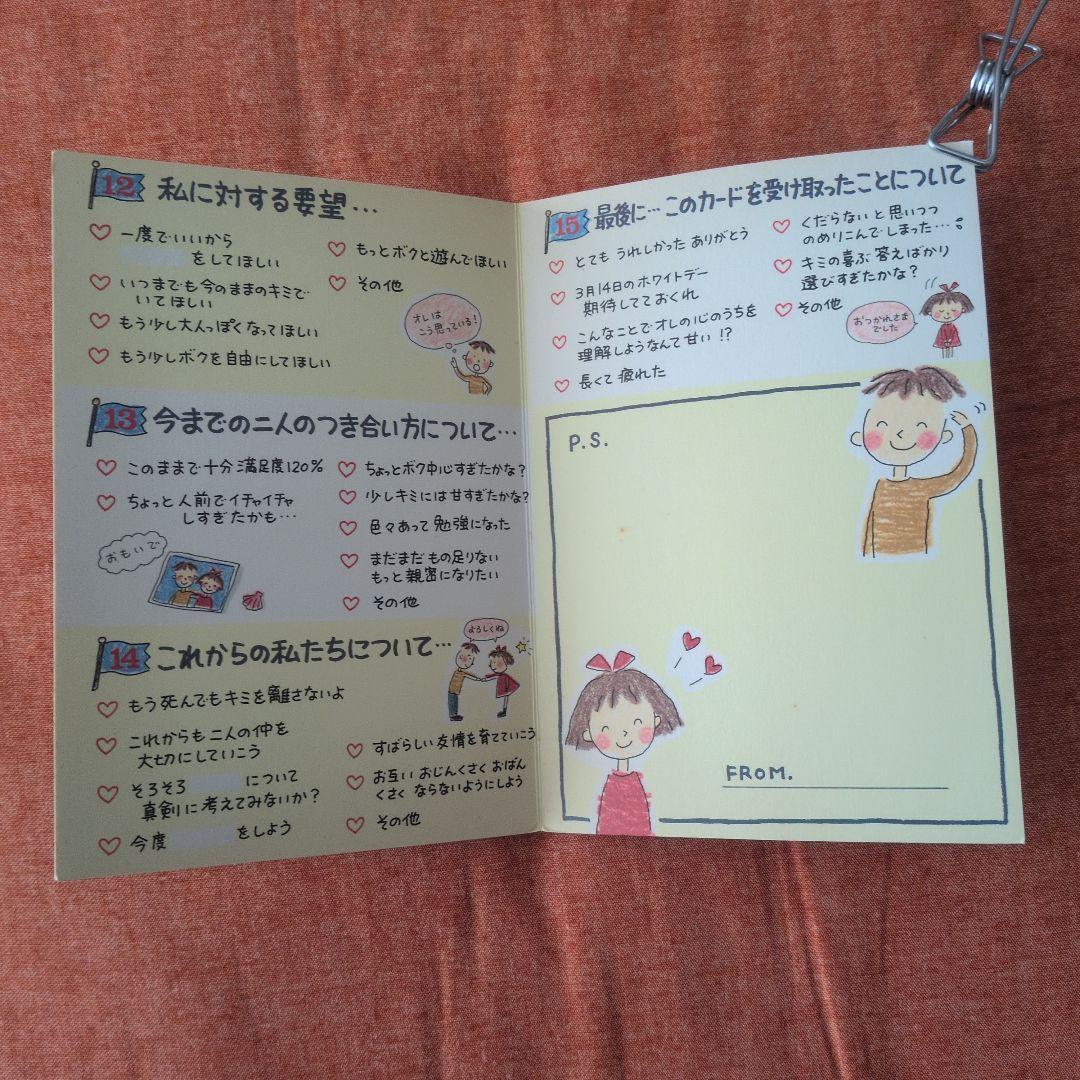 12 私に対する要望…
一度でいいから
をしてほしい
いつまでも今のままのキミで
いてほしい
もう少し大人っぽくなってほしい
もう少しボクを自由にしてほしい
もっとボクと遊んでほしい
その他
オレは
こう思っている!
13 今までの二人のつき合い方について…
このままで十分満足度120%
ちょっと人前でイチャイチャ
しすぎたかも…
おもいで
ちょっとボク中心すぎたかな?
少しキミには甘すぎたかな?
色々あって勉強になった
まだまだもの足りない
もっと親密になりたい
その他
14 これからの私たちについて…
よろしくね
もう死んでもキミを離さないよ
これからも二人の仲を
大切にしていこう
そろそろ について
真剣に考えてみないか?
今度 をしよう
すばらしい友情を育てていこう
お互いおじんくさくおばん
くさくならないようにしよう
その他
15 最後に…このカードを受け取ったことについて
とてもうれしかったありがとう
3月14日のホワイトデー
期待してておくれ
こんなことでオレの心のうちを
理解しようなんて甘い!?
長くて疲れた
くだらないと思いつつ
のめりこんでしまった…。
キミの喜ぶ答えばかり
選びすぎたかな?
その他
おつかれさま
でした
P.S.
FROM.